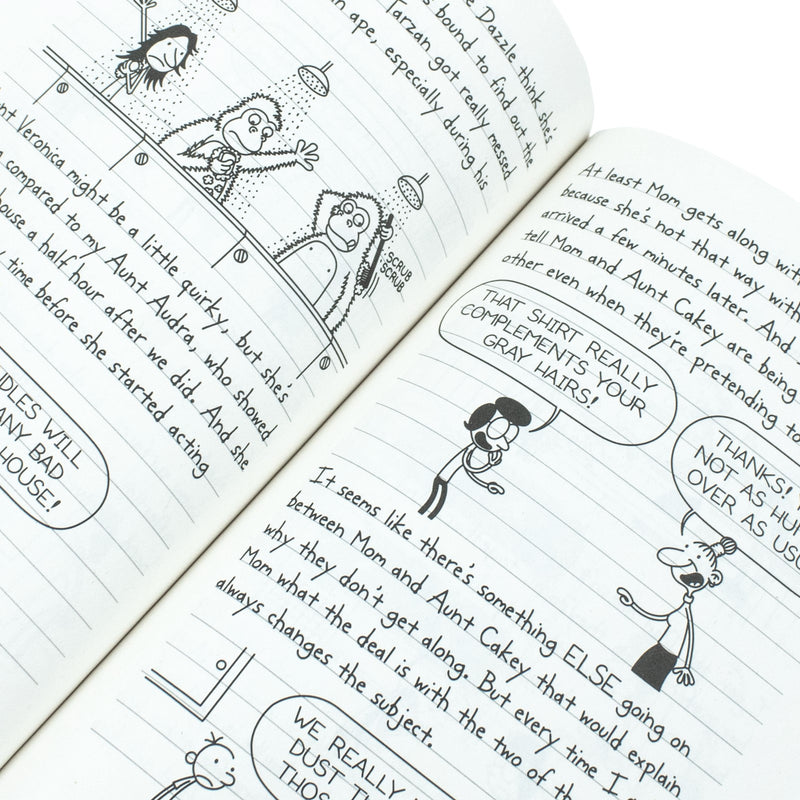 Dazzle think she's
s bound to find out the
Tarzan got really messed
ape, especially during his
SCRUB
SCRUB
Veronica might be a little quirky, but she's
compared to my Aunt Audra, who showed
house a half hour after we did. And she
time before she started acting
WILL
ANY BAD
HOUSE!
At least Mom gets along
because she's not that way with
arrived a few minutes later. And
tell Mom and Aunt Cakey are being
other even when they're pretending to
THAT SHIRT REALLY
COMPLEMENTS YOUR
GRAY HAIRS!
THANKS!
NOT AS
OVER AS
It seems like there's something ELSE going on
between Mom and Aunt Cakey that would explain
why they don't get along. But every time I
Mom what the deal is with the two of
always changes the subject.
WE REALLY
DUST